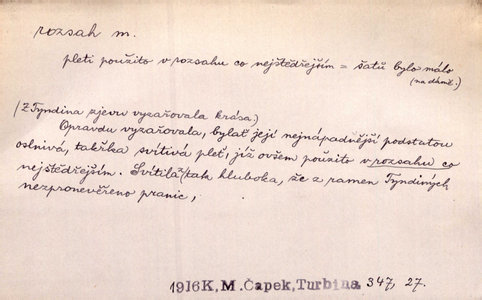 rozsah m.
pleti použito v rozsahu co nejštědřejším = šatů bylo málo
(na dámě.)
(Z Tyndina zjevu vyzařovala krása.)
Opravdu vyzařovala, bylať její nejnápadnější podstatou
oslnivá, takřka svítivá pleť, jíž ovšem použito v rozsahu co
nejštědřejším. Svítila tak hluboka, že z ramen Tyndiných
nezpronevěřeno pranic,
1916 K, M. Čapek, Turbina 347, 27.